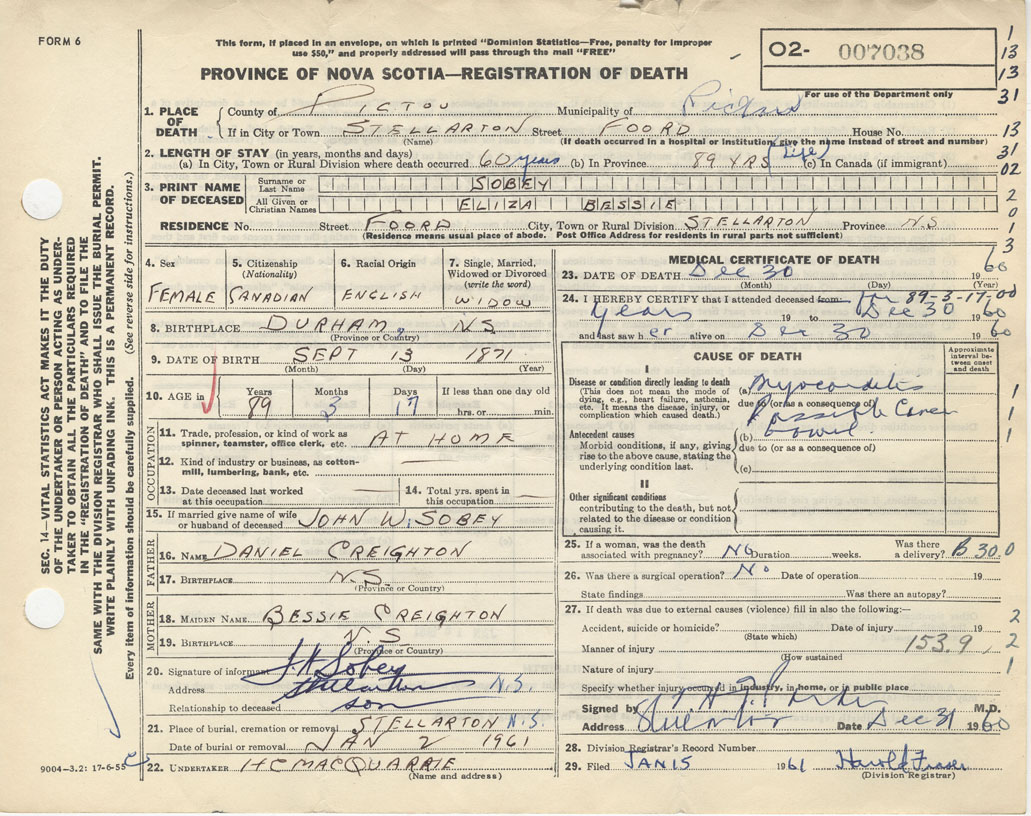 FORM 6
This form, if placed in an envelope, on which is printed "Dominion Statistics—Free, penalty for improper
use $50," and properly addressed will pass through the mail "FREE"
PROVINCE OF NOVA SCOTIA—REGISTRATION OF DEATH
O2- 007038
For use of the Department only
1
13
13
31
13
31
02
2
0
1
3
1. PLACE OF DEATH
County of PICTOU Municipality of
If in City or Town STELLARTON Street FOORD House No.
(Name) (If death occurred in a hospital or institution, give the name instead of street and number)
2. LENGTH OF STAY (in years, months and days)
(a) In City, Town or Rural Division where death occurred 60 years (b) In Province 89 YRS (Life) (c) In Canada (if immigrant)
3. PRINT NAME OF DECEASED
Surname or Last Name SOBEY
All Given or Christian Names ELIZA BESSIE
RESIDENCE No. Street FOORD City, Town or Rural Division STELLARTON Province N.S
(Residence means usual place of abode. Post Office Address for residents in rural parts not sufficient)
4. Sex FEMALE
5. Citizenship (Nationality) CANADIAN
6. Racial Origin ENGLISH
7. Single, Married, Widowed or Divorced (write the word) WIDOW
8. BIRTHPLACE DURHAM, N.S.
(Province or Country)
9. DATE OF BIRTH SEPT 13 1871
(Month) (Day) (Year)
10. AGE in Years 89 Months 3 Days 17 If less than one day old hrs. or min.
OCCUPATION
11. Trade, profession, or kind of work as spinner, teamster, office clerk, etc. AT HOME
12. Kind of industry or business, as cotton-mill, lumbering, bank, etc.
13. Date deceased last worked at this occupation
14. Total yrs. spent in this occupation
15. If married give name of wife or husband of deceased JOHN W. SOBEY
FATHER
16. NAME DANIEL CREIGHTON
17. BIRTHPLACE N.S.
(Province or Country)
MOTHER
18. MAIDEN NAME BESSIE CREIGHTON
19. BIRTHPLACE N.S
(Province or Country)
20. Signature of informant Sobey
Address Stellarton N.S.
Relationship to deceased son
21. Place of burial, cremation or removal STELLARTON N.S.
Date of burial or removal JAN 2 1961
22. UNDERTAKER H C MACQUARRIE
(Name and address)
9004—3.2: 17-6-55
MEDICAL CERTIFICATE OF DEATH
23. DATE OF DEATH Dec 30 1960
(Month) (Day) (Year)
24. I HEREBY CERTIFY that I attended deceased from for 89-3-17-00
years 19 to Dec 30 1960
and last saw her alive on Dec 30 1960
CAUSE OF DEATH
Approximate interval between onset and death
I
Disease or condition directly leading to death
(This does not mean the mode of dying, e.g., heart failure, asthenia, etc. It means the disease, injury, or complication which caused death.)
(a) Myocarditis
due to (or as a consequence of)
Possible Cancer
Bowel
Antecedent causes
Morbid conditions, if any, giving rise to the above cause, stating the underlying condition last.
(b)
due to (or as a consequence of)
(c)
1
1
1
II
Other significant conditions
contributing to the death, but not related to the disease or condition causing it.
25. If a woman, was the death associated with pregnancy? No Duration weeks. Was there a delivery? B 300
26. Was there a surgical operation? No Date of operation 19
State findings Was there an autopsy?
27. If death was due to external causes (violence) fill in also the following:—
Accident, suicide or homicide? Date of injury 19 2
(State which)
Manner of injury 153.9 2
(How sustained
Nature of injury 1
Specify whether injury occurred in industry, in home, or in public place
Signed by M.D.
Address Date Dec 31 1960
28. Division Registrar's Record Number
29. Filed JAN 15 1961 Harold Fraser
(Division Registrar)
SEC. 14—VITAL STATISTICS ACT MAKES IT THE DUTY
OF THE UNDERTAKER OR PERSON ACTING AS UNDER-
TAKER TO OBTAIN ALL THE PARTICULARS REQUIRED
IN THE "REGISTRATION OF DEATH" AND TO FILE THE
SAME WITH THE DIVISION REGISTRAR WHO SHALL ISSUE THE BURIAL PERMIT.
WRITE PLAINLY WITH UNFADING INK. THIS IS A PERMANENT RECORD.
Every item of information should be carefully supplied. (See reverse side for instructions.)